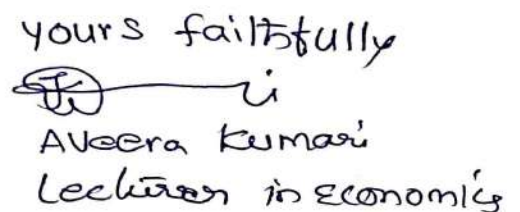 yours faithfully
A Veera Kumari
Lecturer in Economics